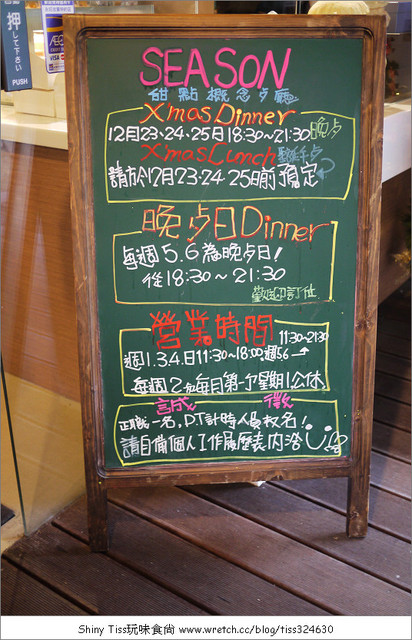 押して下さい
PUSH
VISA
SEASON
甜點概念夕廳
Xmas Dinner
12月23、24、25日18:30~21:30晚夕
Xmas Lunch
請於12月23、24、25日前預定
晚夕日Dinner
每週5.6為晚夕日!
從18:30~21:30
歡迎訂位
營業時間 11:30~21:30
週1.3.4.日11:30~18:00 週56
每週2和每月第一个星期1公休
誠 徵
正職一名,D.T計時人員数名!
請自備個人工作履歷表內洽
Shiny Tiss玩味食尚 www.wretch.cc/blog/tiss324630